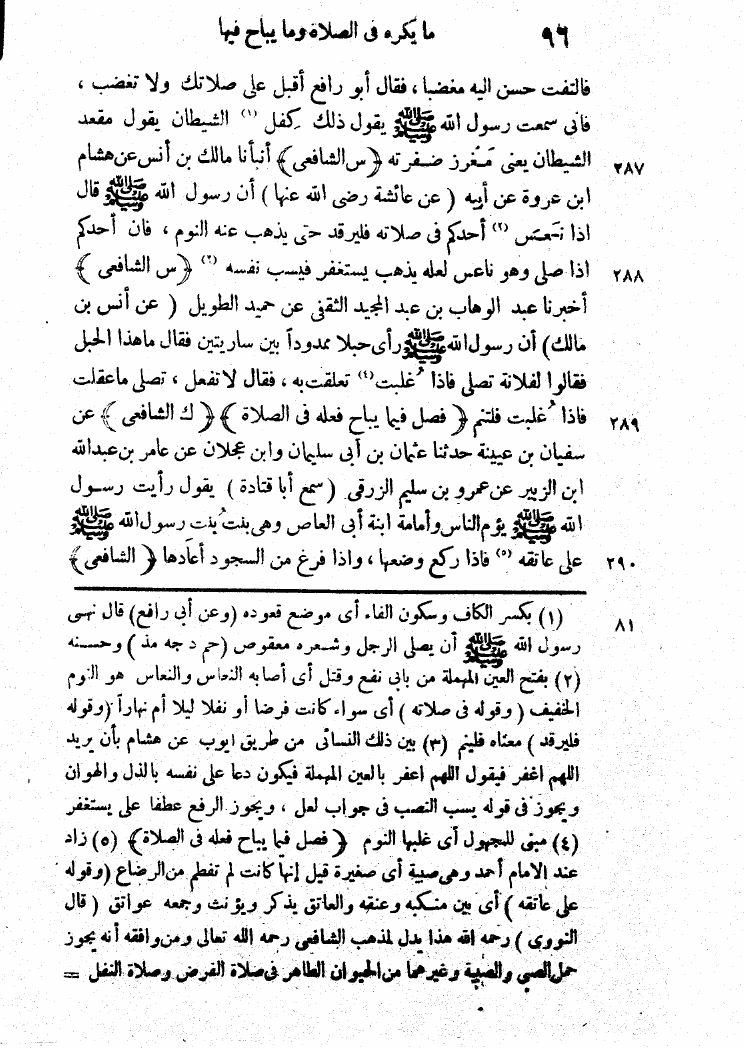 ٩٦ ما يكره فى الصلاة وما يباح فيها
فالتفت حسن اليه مغضبا ، فقال أبو رافع أقبل على صلاتك ولا تغضب ،
فانى سمعت رسول الله ﷺ يقول ذلك كِفل (١) الشيطان يقول مقعد
٢٨٧ الشيطان يعنى مَغْرز ضفرته ﴿ س الشافعى ﴾ أنبأنا مالك بن أنس عن هشام
ابن عروة عن أبيه ( عن عائشة رضى الله عنها ) أن رسول الله ﷺ قال
اذا نَعَس (٢) أحدكم فى صلاته فليرقد حتى يذهب عنه النوم ، فان أحدكم
٢٨٨ اذا صلى وهو ناعس لعله يذهب يستغفر فيسب نفسه (٣) ﴿ س الشافعى ﴾
أخبرنا عبد الوهاب بن عبد المجيد الثقفى عن حميد الطويل ( عن أنس بن
مالك ) أن رسول الله ﷺ رأى حبلا ممدوداً بين ساريتين فقال ماهذا الحبل
فقالوا لفلانة تصلى فاذا غُلبت (٤) تعلقت به ، فقال لا تفعل ، تصلى ماعقلت
٢٨٩ فاذا غُلبت فلتنم ﴿ فصل فيما يباح فعله فى الصلاة ﴾ ﴿ ك الشافعى ﴾ عن
سفيان بن عيينة حدثنا عثمان بن أبى سليمان وابن عجلان عن عامر بن عبدالله
ابن الزبير عن عمرو بن سليم الزرقى ( سمع أبا قتادة ) يقول رأيت رسول
الله ﷺ يؤم الناس وأمامة ابنة أبى العاص وهى بنت بنت رسول الله ﷺ
٢٩٠ على عاتقه (٥) فاذا ركع وضعها ، واذا فرغ من السجود أعادها ﴿ الشافعى ﴾
٨١ (١) بكسر الكاف وسكون الفاء أى موضع قعوده (وعن أبى رافع) قال نهى
رسول الله ﷺ أن يصلى الرجل وشعره معقوص (حم د جه مذ) وحسنه
(٢) بفتح العين المهملة من بابى نفع وقتل أى أصابه النعاس والنعاس هو النوم
الخفيف ( وقوله فى صلاته ) أى سواء كانت فرضا أو نفلا ليلا أم نهاراً (وقوله
فليرقد ) معناه فلينم (٣) بين ذلك النسائى من طريق ايوب عن هشام بأن يريد
اللهم اغفر فيقول اللهم اعفر بالعين المهملة فيكون دعا على نفسه بالذل والهوان
ويجوز فى قوله يسب النصب فى جواب لعل ، ويجوز الرفع عطفا على يستغفر
(٤) مبنى للمجهول أى غلبها النوم ﴿ فصل فيما يباح فعله فى الصلاة ﴾ (٥) زاد
عند الامام أحمد وهى صبية أى صغيرة قيل إنها كانت لم تفطم من الرضاع (وقوله
على عاتقه ) أى بين منكبه وعنقه والعاتق يذكر ويؤنث وجمعه عواتق ( قال
النووى ) رحمه الله هذا يدل لمذهب الشافعى رحمه الله تعالى ومن وافقه أنه يجوز
حمل الصبى والصبية وغيرهما من الحيوان الطاهر فى صلاة الفرض وصلاة النفل =